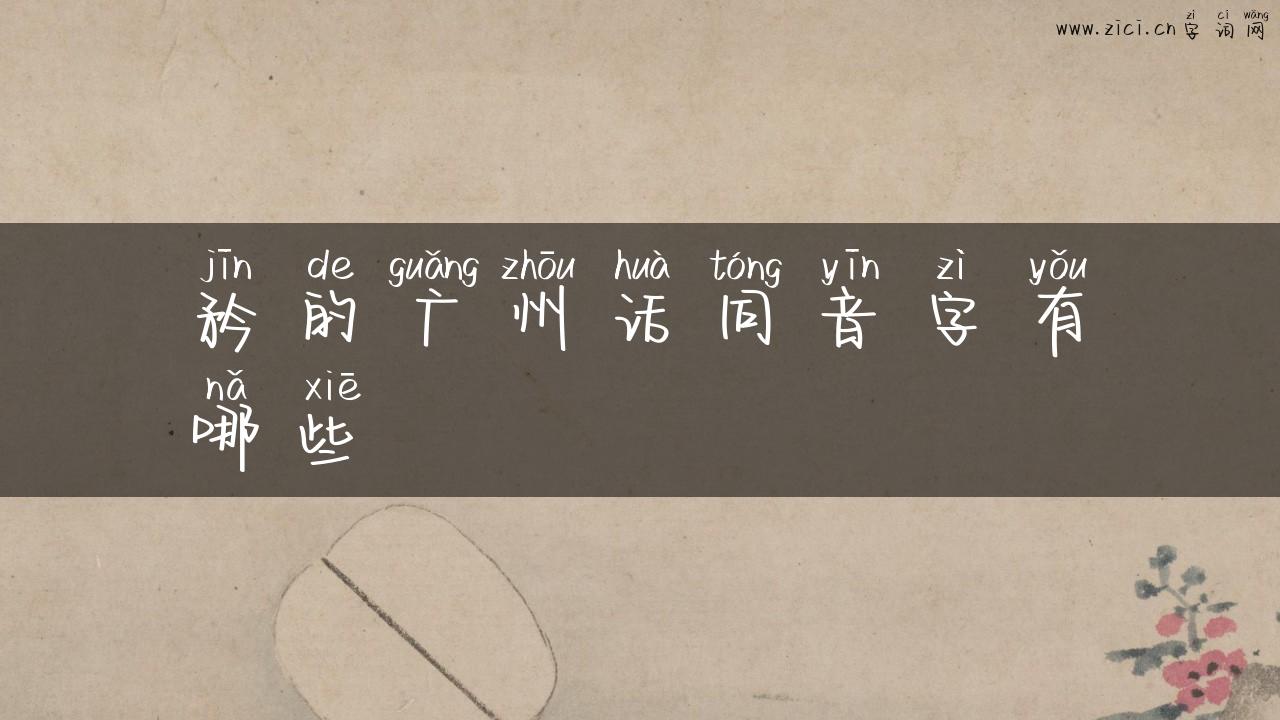 zì cí wǎng
www.zici.cn 字词网
jīn de guǎng zhōu huà tóng yīn zì yǒu
矜的广州话同音字有
nǎ xiē
哪些